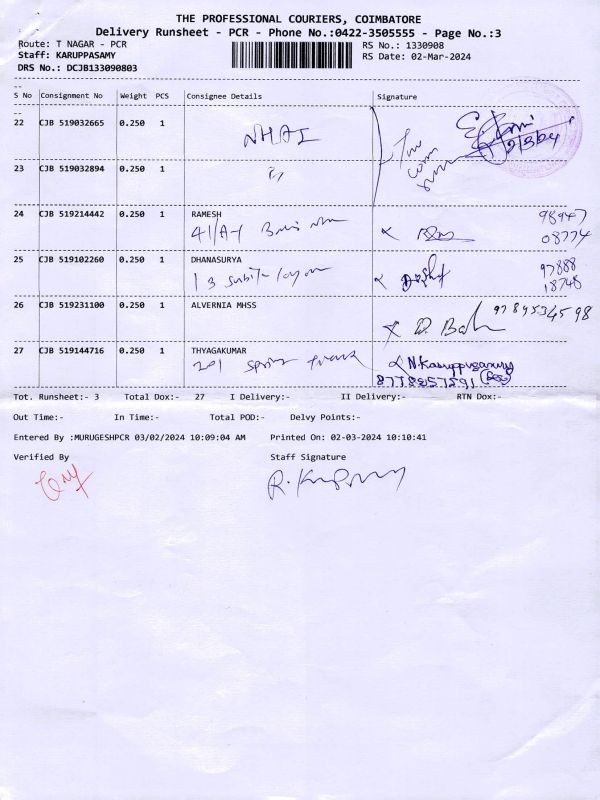 THE PROFESSIONAL COURIERS, COIMBATORE
Delivery Runsheet - PCR - Phone No.:0422-3505555 - Page No.:3
Route: T NAGAR - PCR
RS No.: 1330908
Staff: KARUPPASAMY
RS Date: 02-Mar-2024
DRS No.: DCJB133090803
S No Consignment No Weight PCS Consignee Details Signature
22 CJB 519032665 0.250 1
NHAI
2/3/24
23 CJB 519032894 0.250 1
24 CJB 519214442 0.250 1 RAMESH
41/A-1
98947
08774
25 CJB 519102260 0.250 1 DHANASURYA
13
97888
18748
26 CJB 519231100 0.250 1 ALVERNIA MHSS
9789534598
27 CJB 519144716 0.250 1 THYAGAKUMAR
201 N.Karuppusamy
Tot. Runsheet:- 3 Total Dox:- 27 I Delivery:- II Delivery:- RTN Dox:-
Out Time:- In Time:- Total POD:- Delvy Points:-
Entered By :MURUGESHPCR 03/02/2024 10:09:04 AM Printed On: 02-03-2024 10:10:41
Verified By Staff Signature